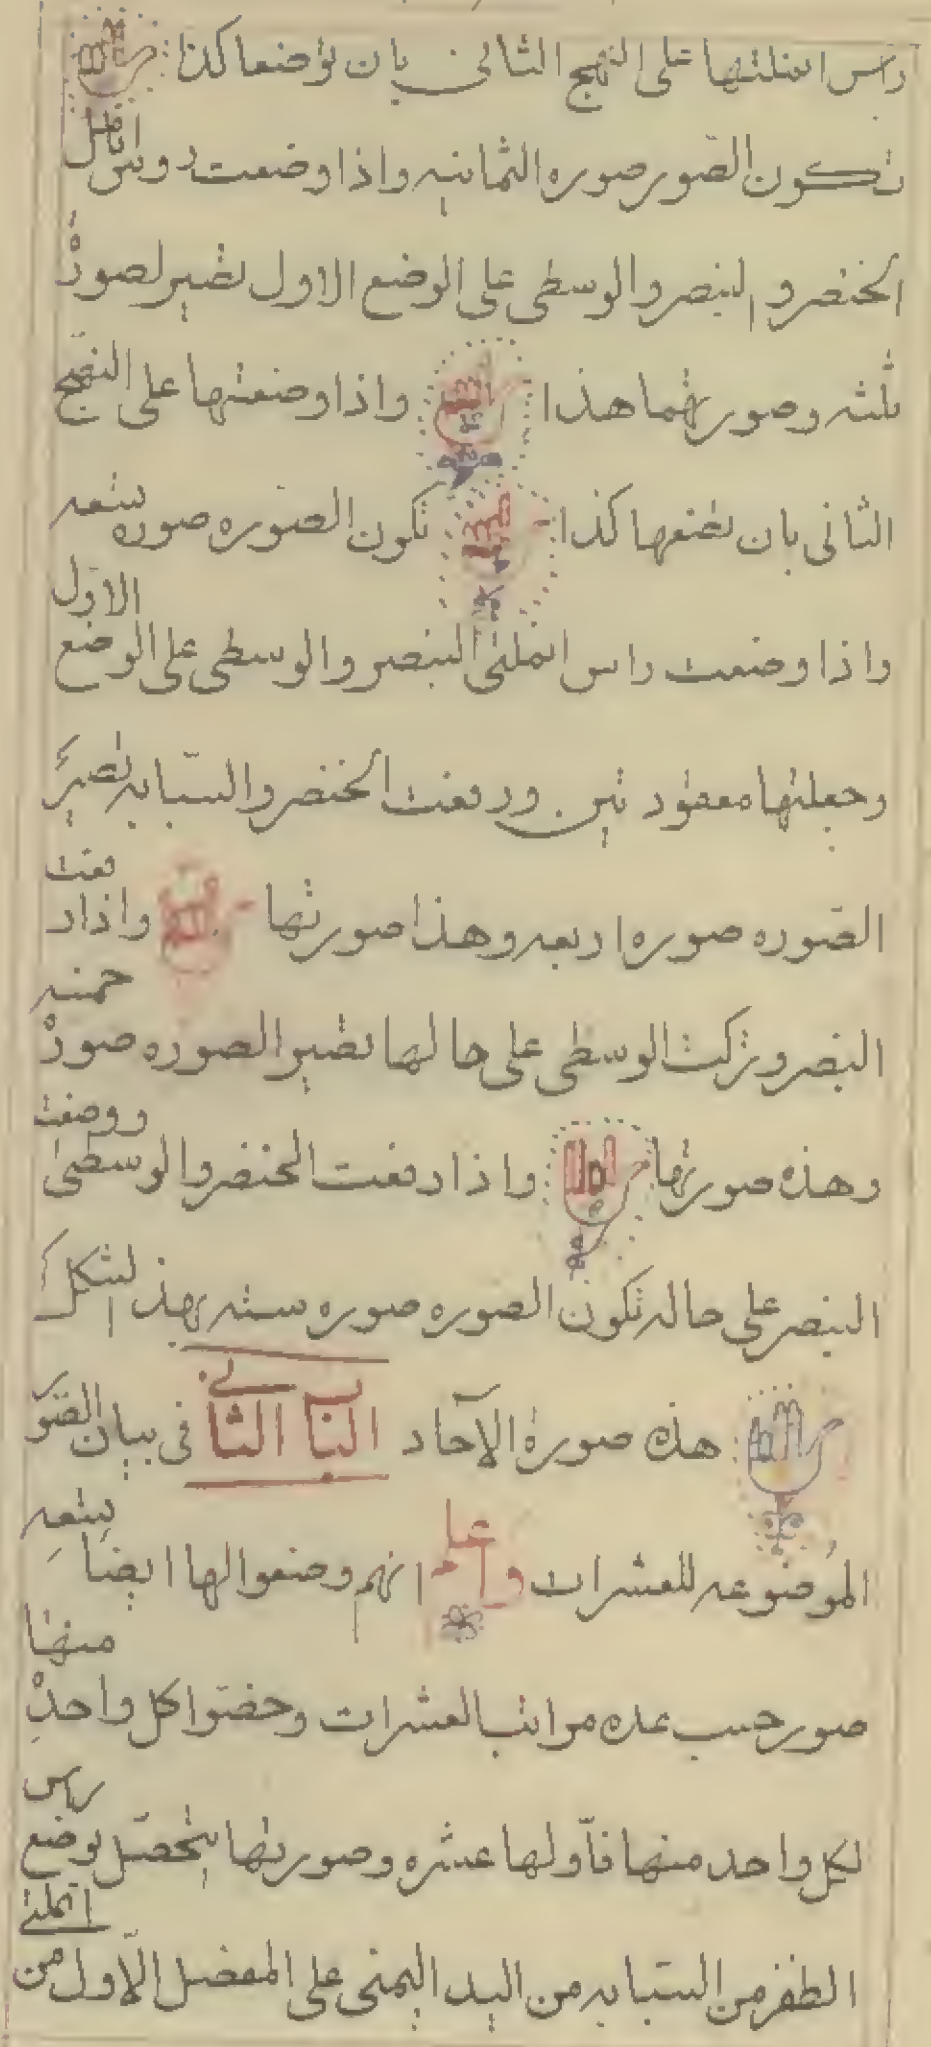 راس انملتها على النهج الثاني بان توضعا كذا
تكون الصور صوره الثمانيه واذا وضعت روس انامل
الخنصر و البنصر والوسطى على الوضع الاول تصير لصورة
ثلثه وصورتهما هذا واذا وضعتها على النهج
الثانى بان تضعها كذا تكون الصوره صوره تسعه
واذا وضعت راس انملتى البنصر والوسطى على الوضع الاول
وجعلتها معقودتين ورفعت الخنصر والسبابه تصير
الصوره صوره اربعه وهذا صورتها واذا رفعت
البنصر وتركت الوسطى على حالها تصير الصوره صورة خمسه
وهذه صورتها واذا رفعت الخنصر والوسطى ووضعت
البنصر على حاله تكون الصوره صوره سته بهذ الشكل
هذه صورة الآحاد البا ب الثانى فى بيان الصور
الموضوعه للعشرات واعلم انهم وضعوا لها ايضا تسعه
صور حسب عده مراتب العشرات وخصّوا كل واحدة منها
لكل واحد منها فاولها عشره وصورتها يتحصل بوضع راس
الظفر من السبابه من اليد اليمنى على المفصل الاول من انملتى